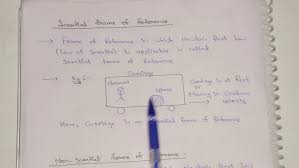 Inertial Frame of Reference
→ Frame of Reference in which Newton's First Law
(Law of Inertia) is applicable is called
Inertial Frame of Reference
→ Eg:-
Carriage
Observer
Sphere
Carriage is at Rest
or
Moving in Uniform
velocity
Here, Carriage is an Inertial frame of Reference
Non-Inertial Frame of Reference :-